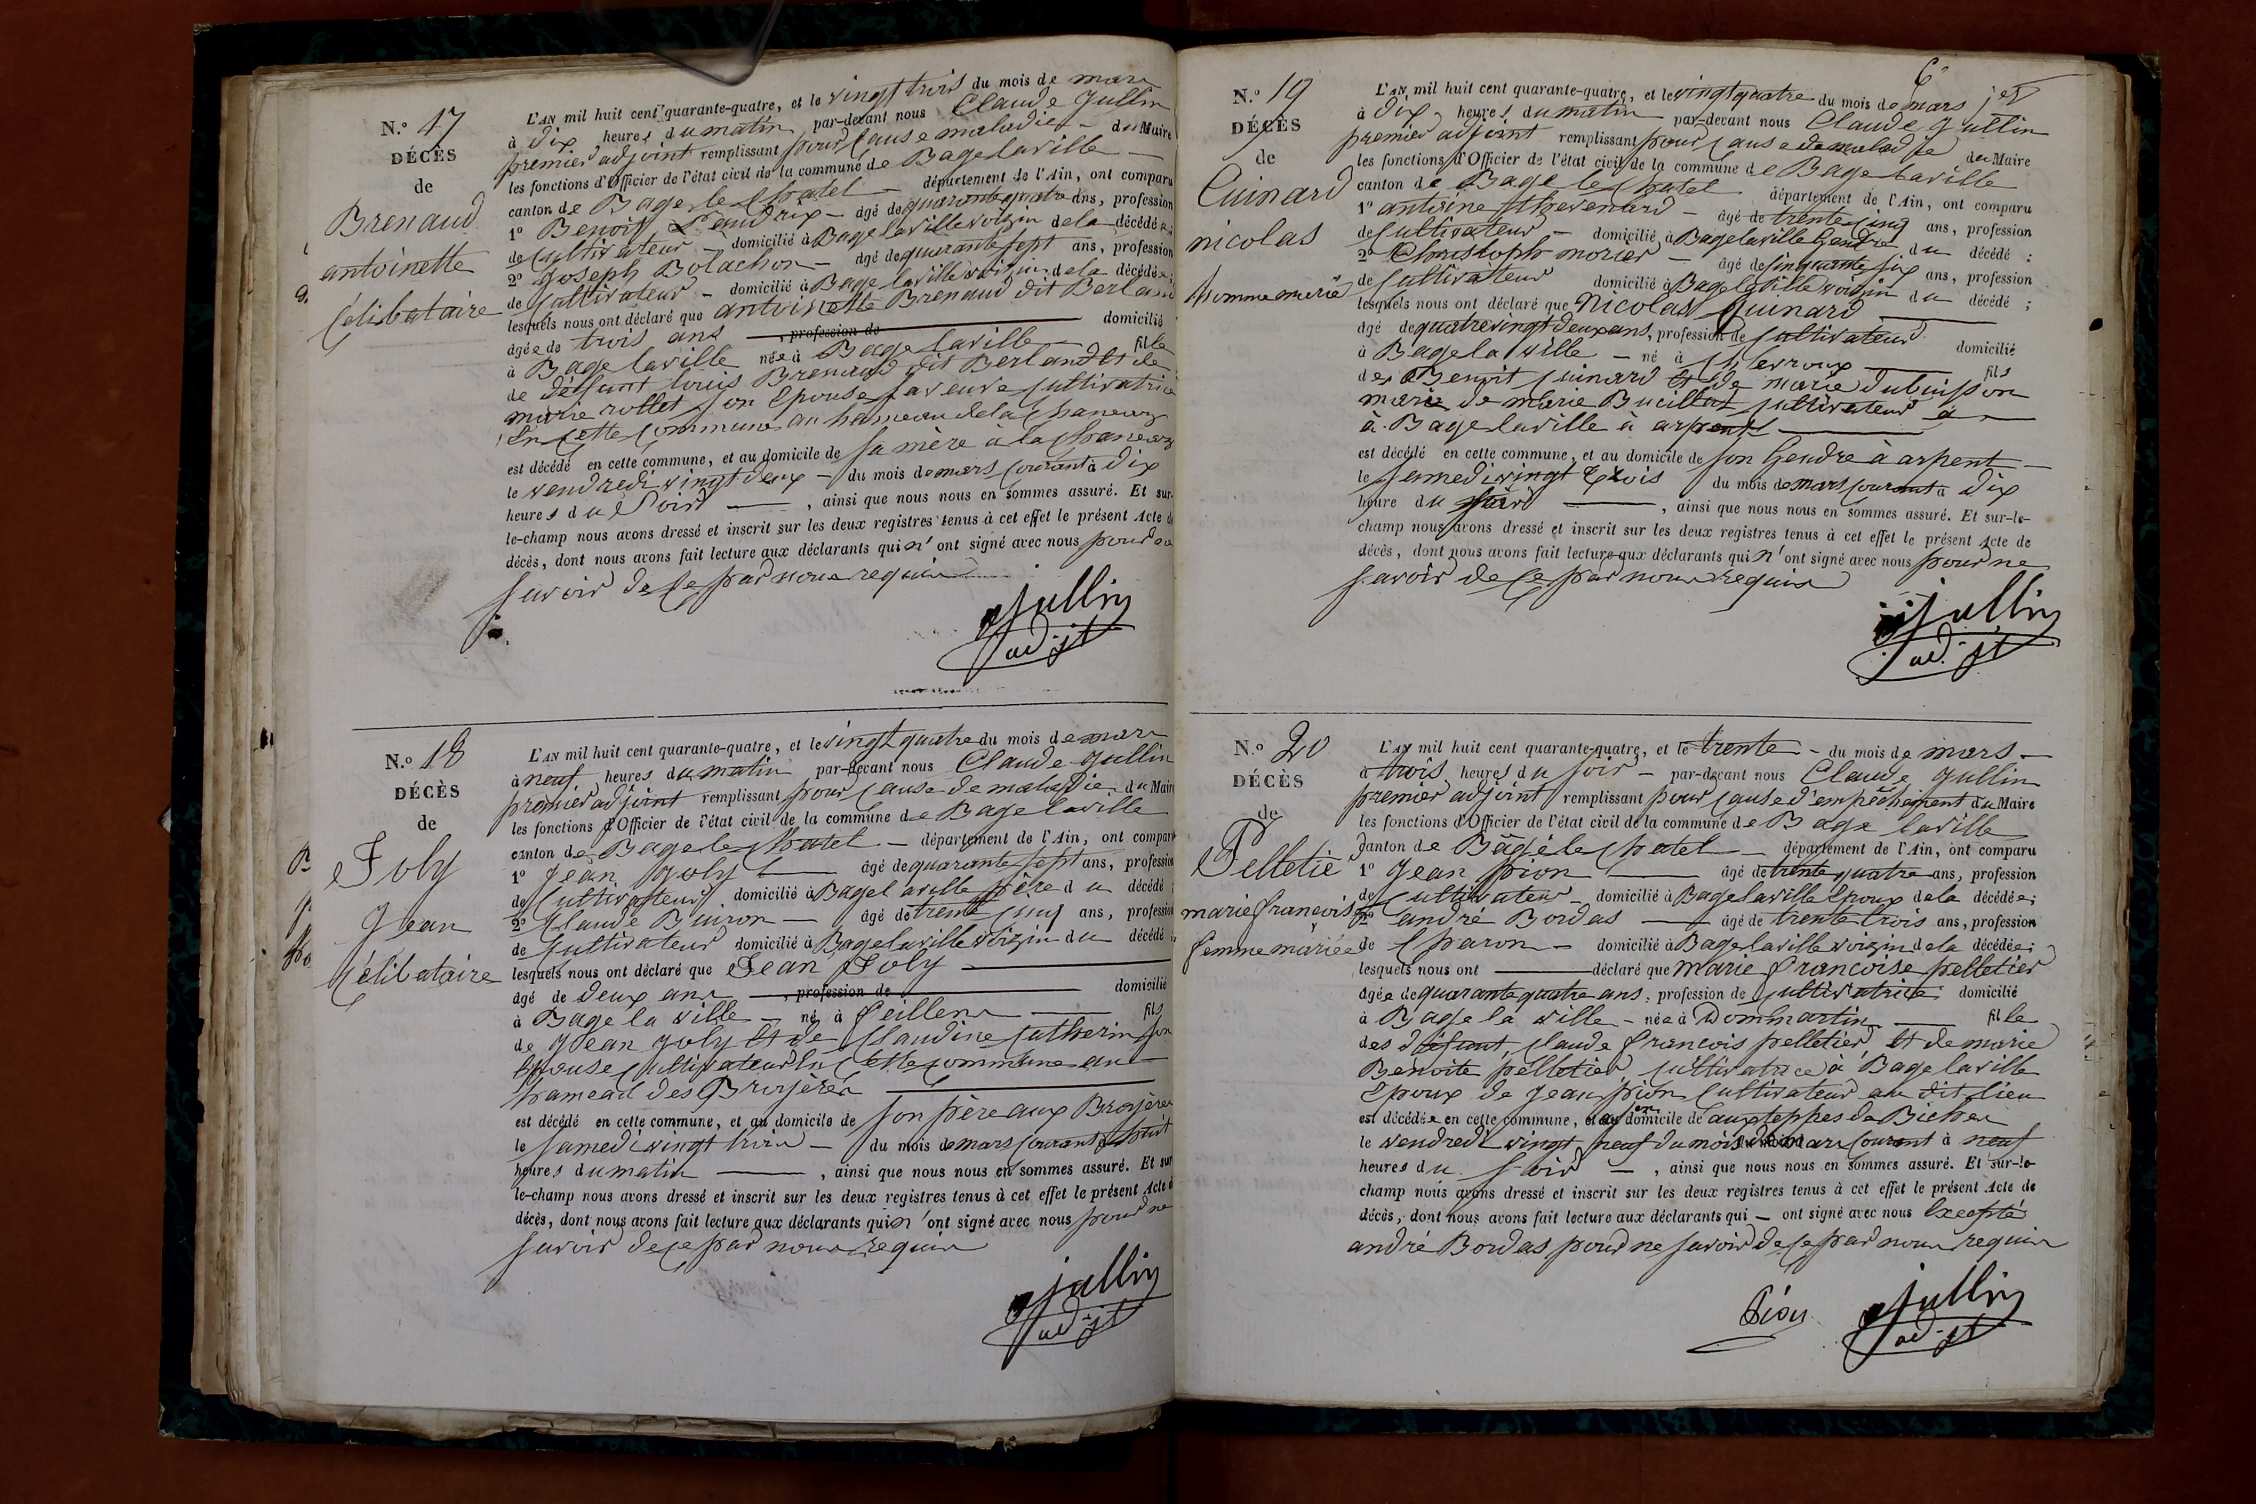 N.º 17
DÉCÈS
de
Brenaud
antoinette
Célibataire
L'AN mil huit cent quarante-quatre, et le vingt trois du mois de mars
à dix heures du matin par-devant nous Claude Jullin
premier adjoint remplissant pour cause maladie du Maire
les fonctions d'Officier de l'état civil de la commune de Bagelaville
canton de Bage le Chatel département de l'Ain, ont comparu
1º Benoit Landrix âgé de quarante quatre ans, profession
de Cultivateur domicilié à Bagelaville voizin de la décédée;
2º Joseph Bolachon âgé de quarante sept ans, profession
de Cultivateur domicilié à Bage laville voizin de la décédée;
lesquels nous ont déclaré que antoinette Brenaud dit Berland
âgée de trois ans , profession de domicilié
à Bage laville née à Bage laville fille
de deffunt louis Brenaud dit Berland Et de
marie rollet son Epouse sa veuve Cultivatrice
En Cette Commune au hameau de la Chaneux
est décédé en cette commune, et au domicile de sa mère à la Chaneux
le vendredi vingt deux du mois de mars Courant à dix
heures du Soir , ainsi que nous nous en sommes assuré. Et sur-
le-champ nous avons dressé et inscrit sur les deux registres tenus à cet effet le présent Acte de
décès, dont nous avons fait lecture aux déclarants qui n'ont signé avec nous pour ne
savoir de Ce par nous requis
Jullin
adjt
N.º 18
DÉCÈS
de
Joly
Jean
Célibataire
L'AN mil huit cent quarante-quatre, et le vingt quatre du mois de mars
à neuf heures du matin par-devant nous Claude Jullin
premier adjoint remplissant pour Cause de maladie du Maire
les fonctions d'Officier de l'état civil de la commune de Bage laville
canton de Bage le Chatel département de l'Ain, ont comparu
1º Jean Joly âgé de quarante sept ans, profession
de Cultivateur domicilié à Bage laville père du décédé;
2º Claude Buiron âgé de trente Cinq ans, profession
de Cultivateur domicilié à Bagelaville voizin du décédé
lesquels nous ont déclaré que Jean Joly
âgé de deux ans , profession de domicilié
à Bage la ville né à feillens fils
de Jean Joly Et de Claudine Cutherin son
Epouse Cultivateur En Cette Commune au
hameau des Broyères
est décédé en cette commune, et au domicile de son père aux Broyères
le Samedi vingt trois du mois de mars Courant à huit
heures du matin , ainsi que nous nous en sommes assuré. Et sur
le-champ nous avons dressé et inscrit sur les deux registres tenus à cet effet le présent Acte de
décès, dont nous avons fait lecture aux déclarants qui n'ont signé avec nous pour ne
savoir de Ce par nous requis
Jullin
adjt
6e
N.º 19
DÉCÈS
de
Cuinard
nicolas
homme marié
L'AN mil huit cent quarante-quatre, et le vingt quatre du mois de mars
à dix heures du matin par-devant nous Claude Jullin
premier adjoint remplissant pour Cause de maladie du Maire
les fonctions d'Officier de l'état civil de la commune de Bage laville
canton de Bage le Chatel département de l'Ain, ont comparu
1º antoine thevenard âgé de trente Cinq ans, profession
de Cultivateur domicilié à Bagelaville Gendre du décédé;
2º Christoph morier âgé de Cinquante six ans, profession
de Cultivateur domicilié à Bagelaville voizin du décédé;
lesquels nous ont déclaré que nicolas Guinard
âgé de quatrevingt deux ans, profession de Cultivateur domicilié
à Bage la ville né à Chevroux fils
des Benoit Cuinard Et de marie dubuisson
marié de marie Bucillat Cultivateur
à Bagelaville à arpents
est décédé en cette commune, et au domicile de son Gendre à arpent
le Samedi vingt trois du mois de mars Courant à dix
heure du soir , ainsi que nous nous en sommes assuré. Et sur-le-
champ nous avons dressé et inscrit sur les deux registres tenus à cet effet le présent Acte de
décès, dont nous avons fait lecture aux déclarants qui n'ont signé avec nous pour ne
savoir de Ce par nous requis
Jullin
adjt
N.º 20
DÉCÈS
de
Pelletié
marie francoise
femme mariée
L'AN mil huit cent quarante-quatre, et le trente du mois de mars
à trois heures du soir par-devant nous Claude Jullin
premier adjoint remplissant pour Cause d'empêchement du Maire
les fonctions d'Officier de l'état civil de la commune de Bage laville
canton de Bagé le Chatel département de l'Ain, ont comparu
1º Jean pion âgé de trente quatre ans, profession
de Cultivateur domicilié à Bagelaville Epoux de la décédée;
2º andré Bordas âgé de trente trois ans, profession
de Charon domicilié à Bagelaville voizin de la décédée;
lesquels nous ont déclaré que marie francoise pelletier
âgée de quarante quatre ans, profession de Cultivatrice domicilié
à Bage la ville née à Dommartin fille
des defunt, Claude francois pelletier, Et de marie
Benoite pelletier Cultivatrice à Bagelaville
Epoux de Jean pion Cultivateur au dit lieu
est décédée en cette commune, et au domicile de aux teppes de Biches
le vendredi vingt neuf du mois de mars Courant à neuf
heures du soir , ainsi que nous nous en sommes assuré. Et sur-le-
champ nous avons dressé et inscrit sur les deux registres tenus à cet effet le présent Acte de
décès, dont nous avons fait lecture aux déclarants qui ont signé avec nous Excepté
andré Bordas pour ne savoir de Ce par nous requis
Pion
Jullin
adjt